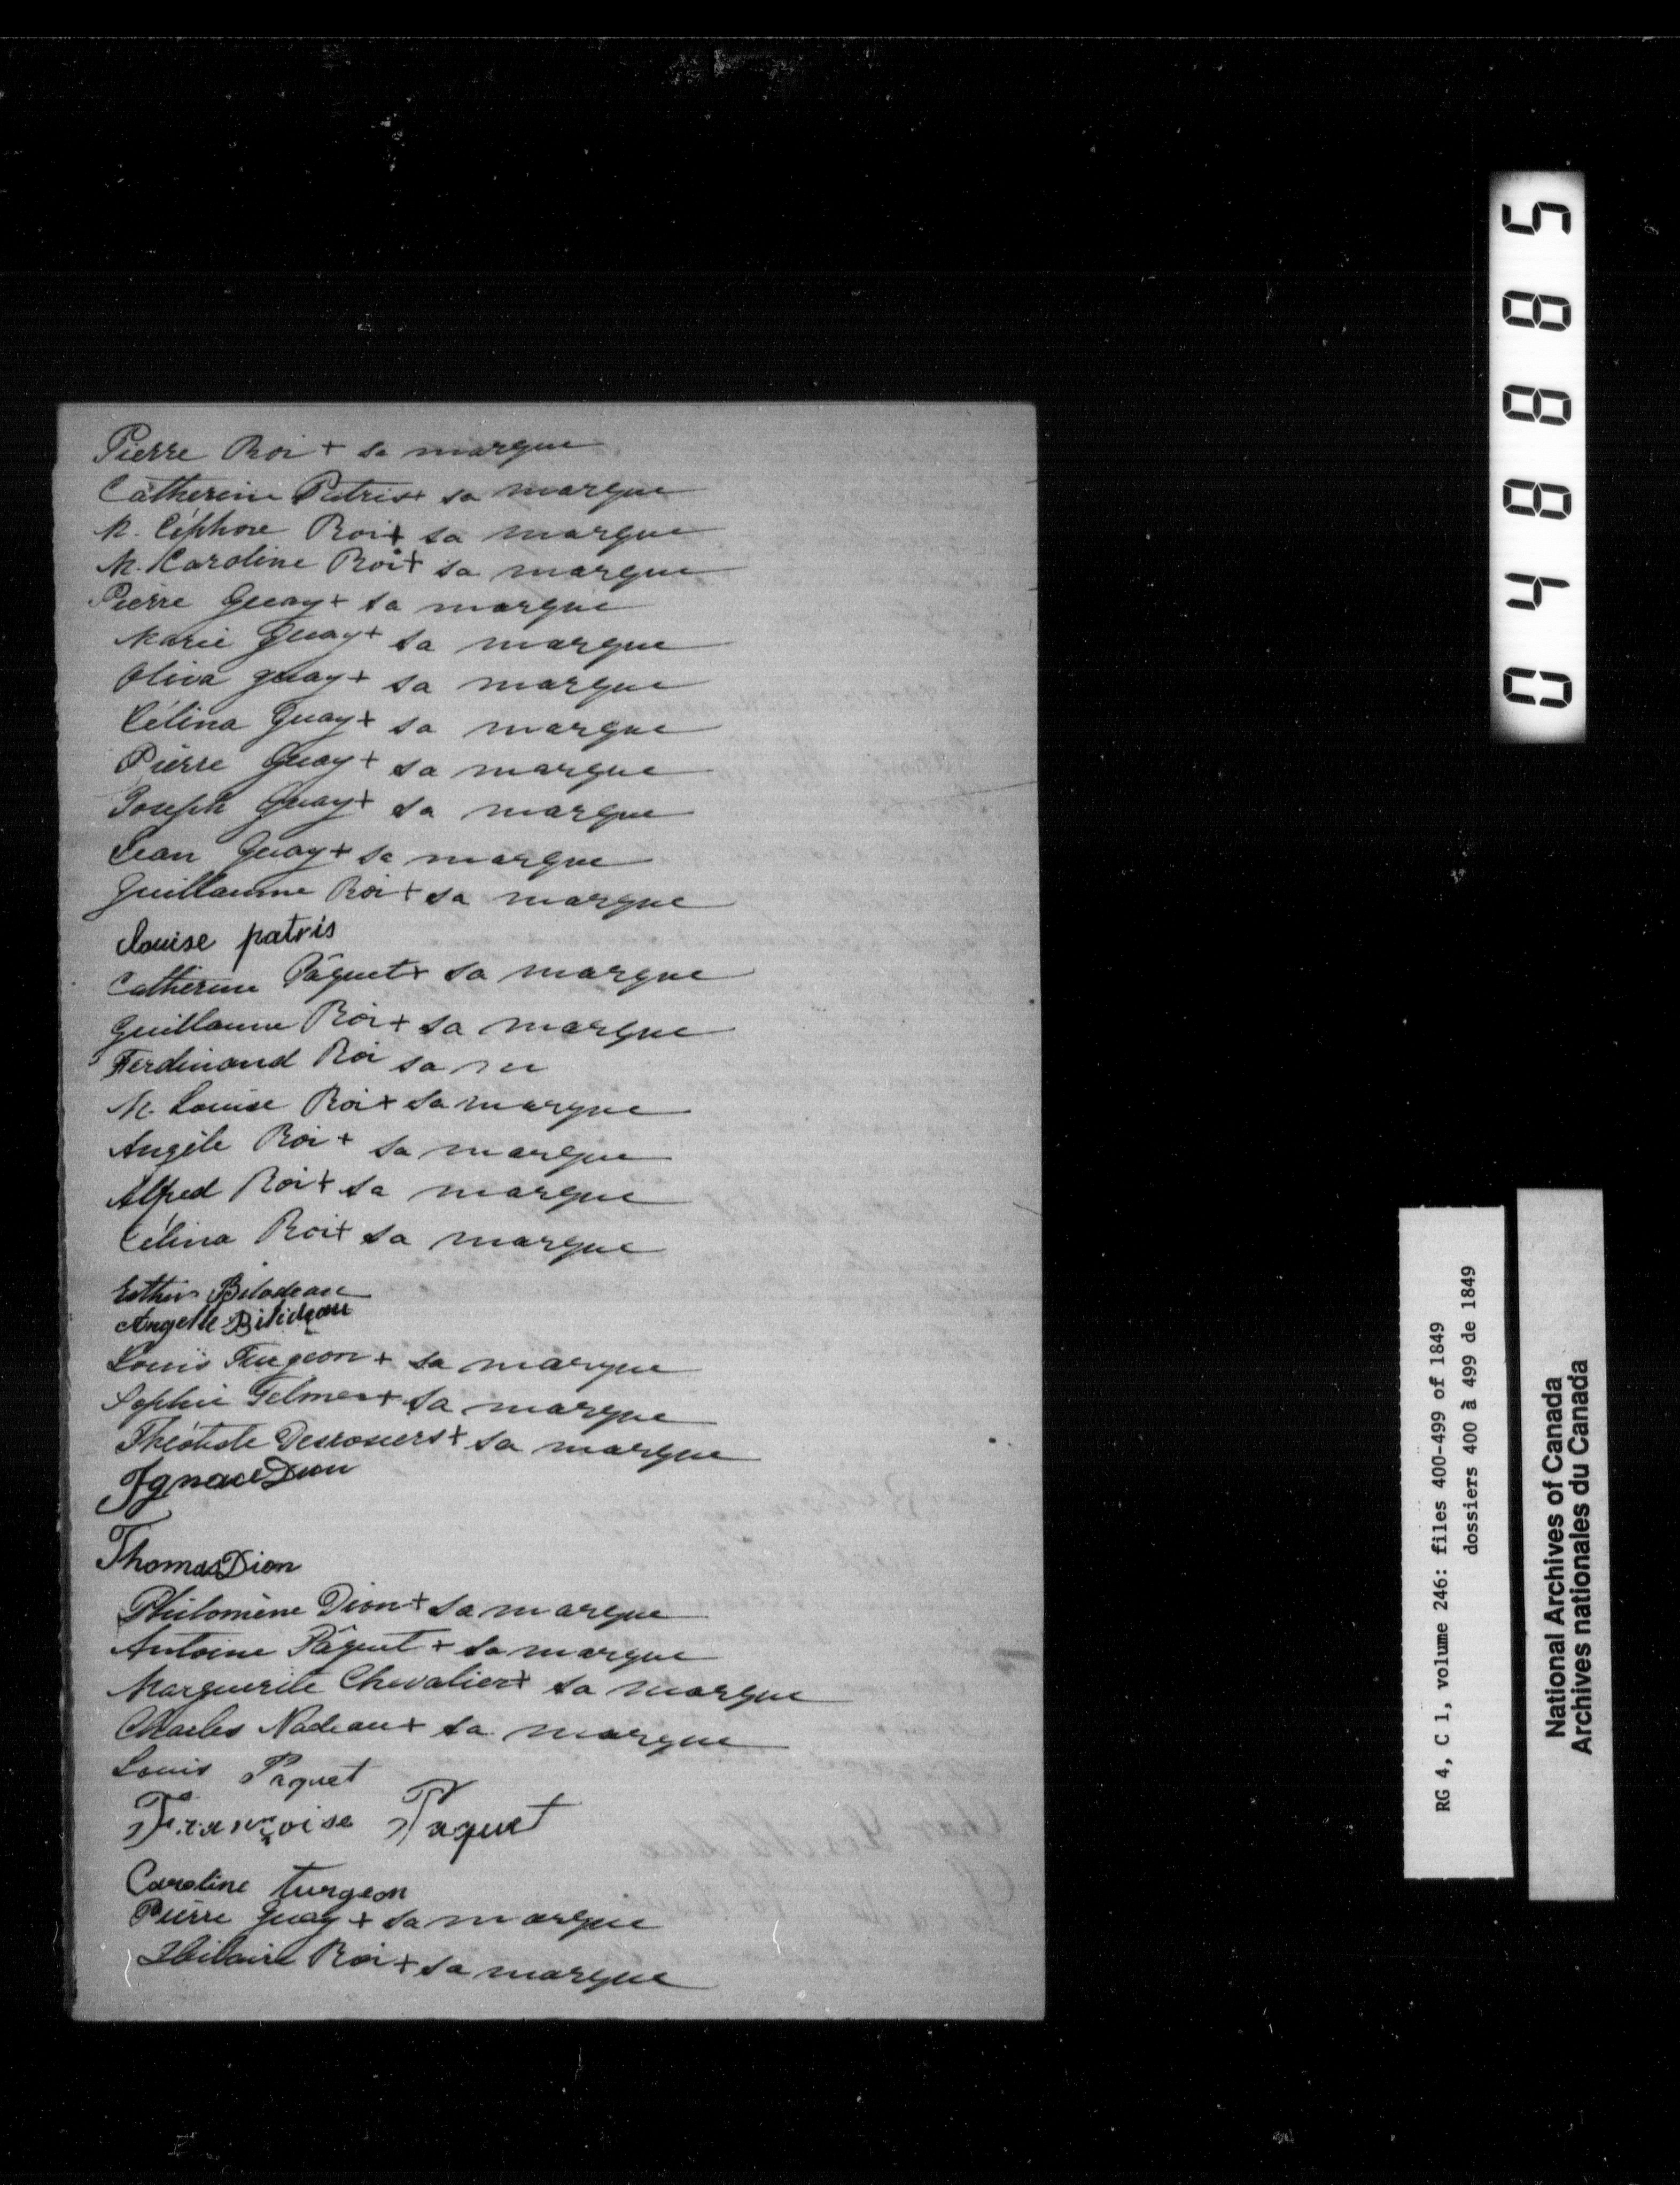 Pierre Roi + sa marque
Catherine Patris + sa marque
M. Céphore Roi + sa marque
M. Caroline Roi + sa marque
Pierre Guay + sa marque
Marie Guay + sa marque
Oliva Guay + sa marque
Célina Guay + sa marque
Pierre Guay + sa marque
Joseph Guay + sa marque
Jean Guay + sa marque
Guillaume Roi + sa marque
Louise patris
Catherine Pâquet + sa marque
Guillaume Roi + sa marque
Ferdinand Roi sa
M. Louise Roi + sa marque
Angèle Roi + sa marque
Alfred Roi + sa marque
Célina Roi + sa marque
Esther Bilodeau
Angelle Bilideau
Louis Turgeon + sa marque
Sophie + sa marque
Théotiste Desrosiers + sa marque
Ignace Dion
Thomas Dion
Philomène Dion + sa marque
Antoine Pâquet + sa marque
Marguerite Chevalier + sa marque
Charles Nadeau + sa marque
Louis Paquet
Françoise Paquet
Caroline turgeon
Pierre Guay + sa marque
Hilaire Roi + sa marque
048885
RG 4, C 1, volume 246: files 400-499 of 1849
dossiers 400 à 499 de 1849
National Archives of Canada
Archives nationales du Canada